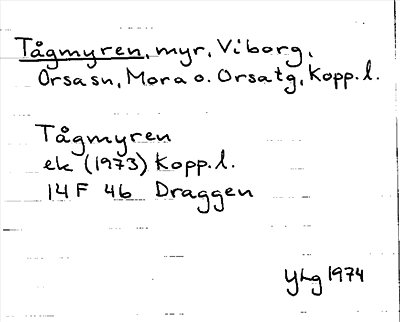 Tågmyren, myr, Viborg,
Orsasn, Mora o. Orsatg, Kopp.l.
Tågmyren
ek (1973) Kopp.l.
14 F 4b Draggen
YLg 1974